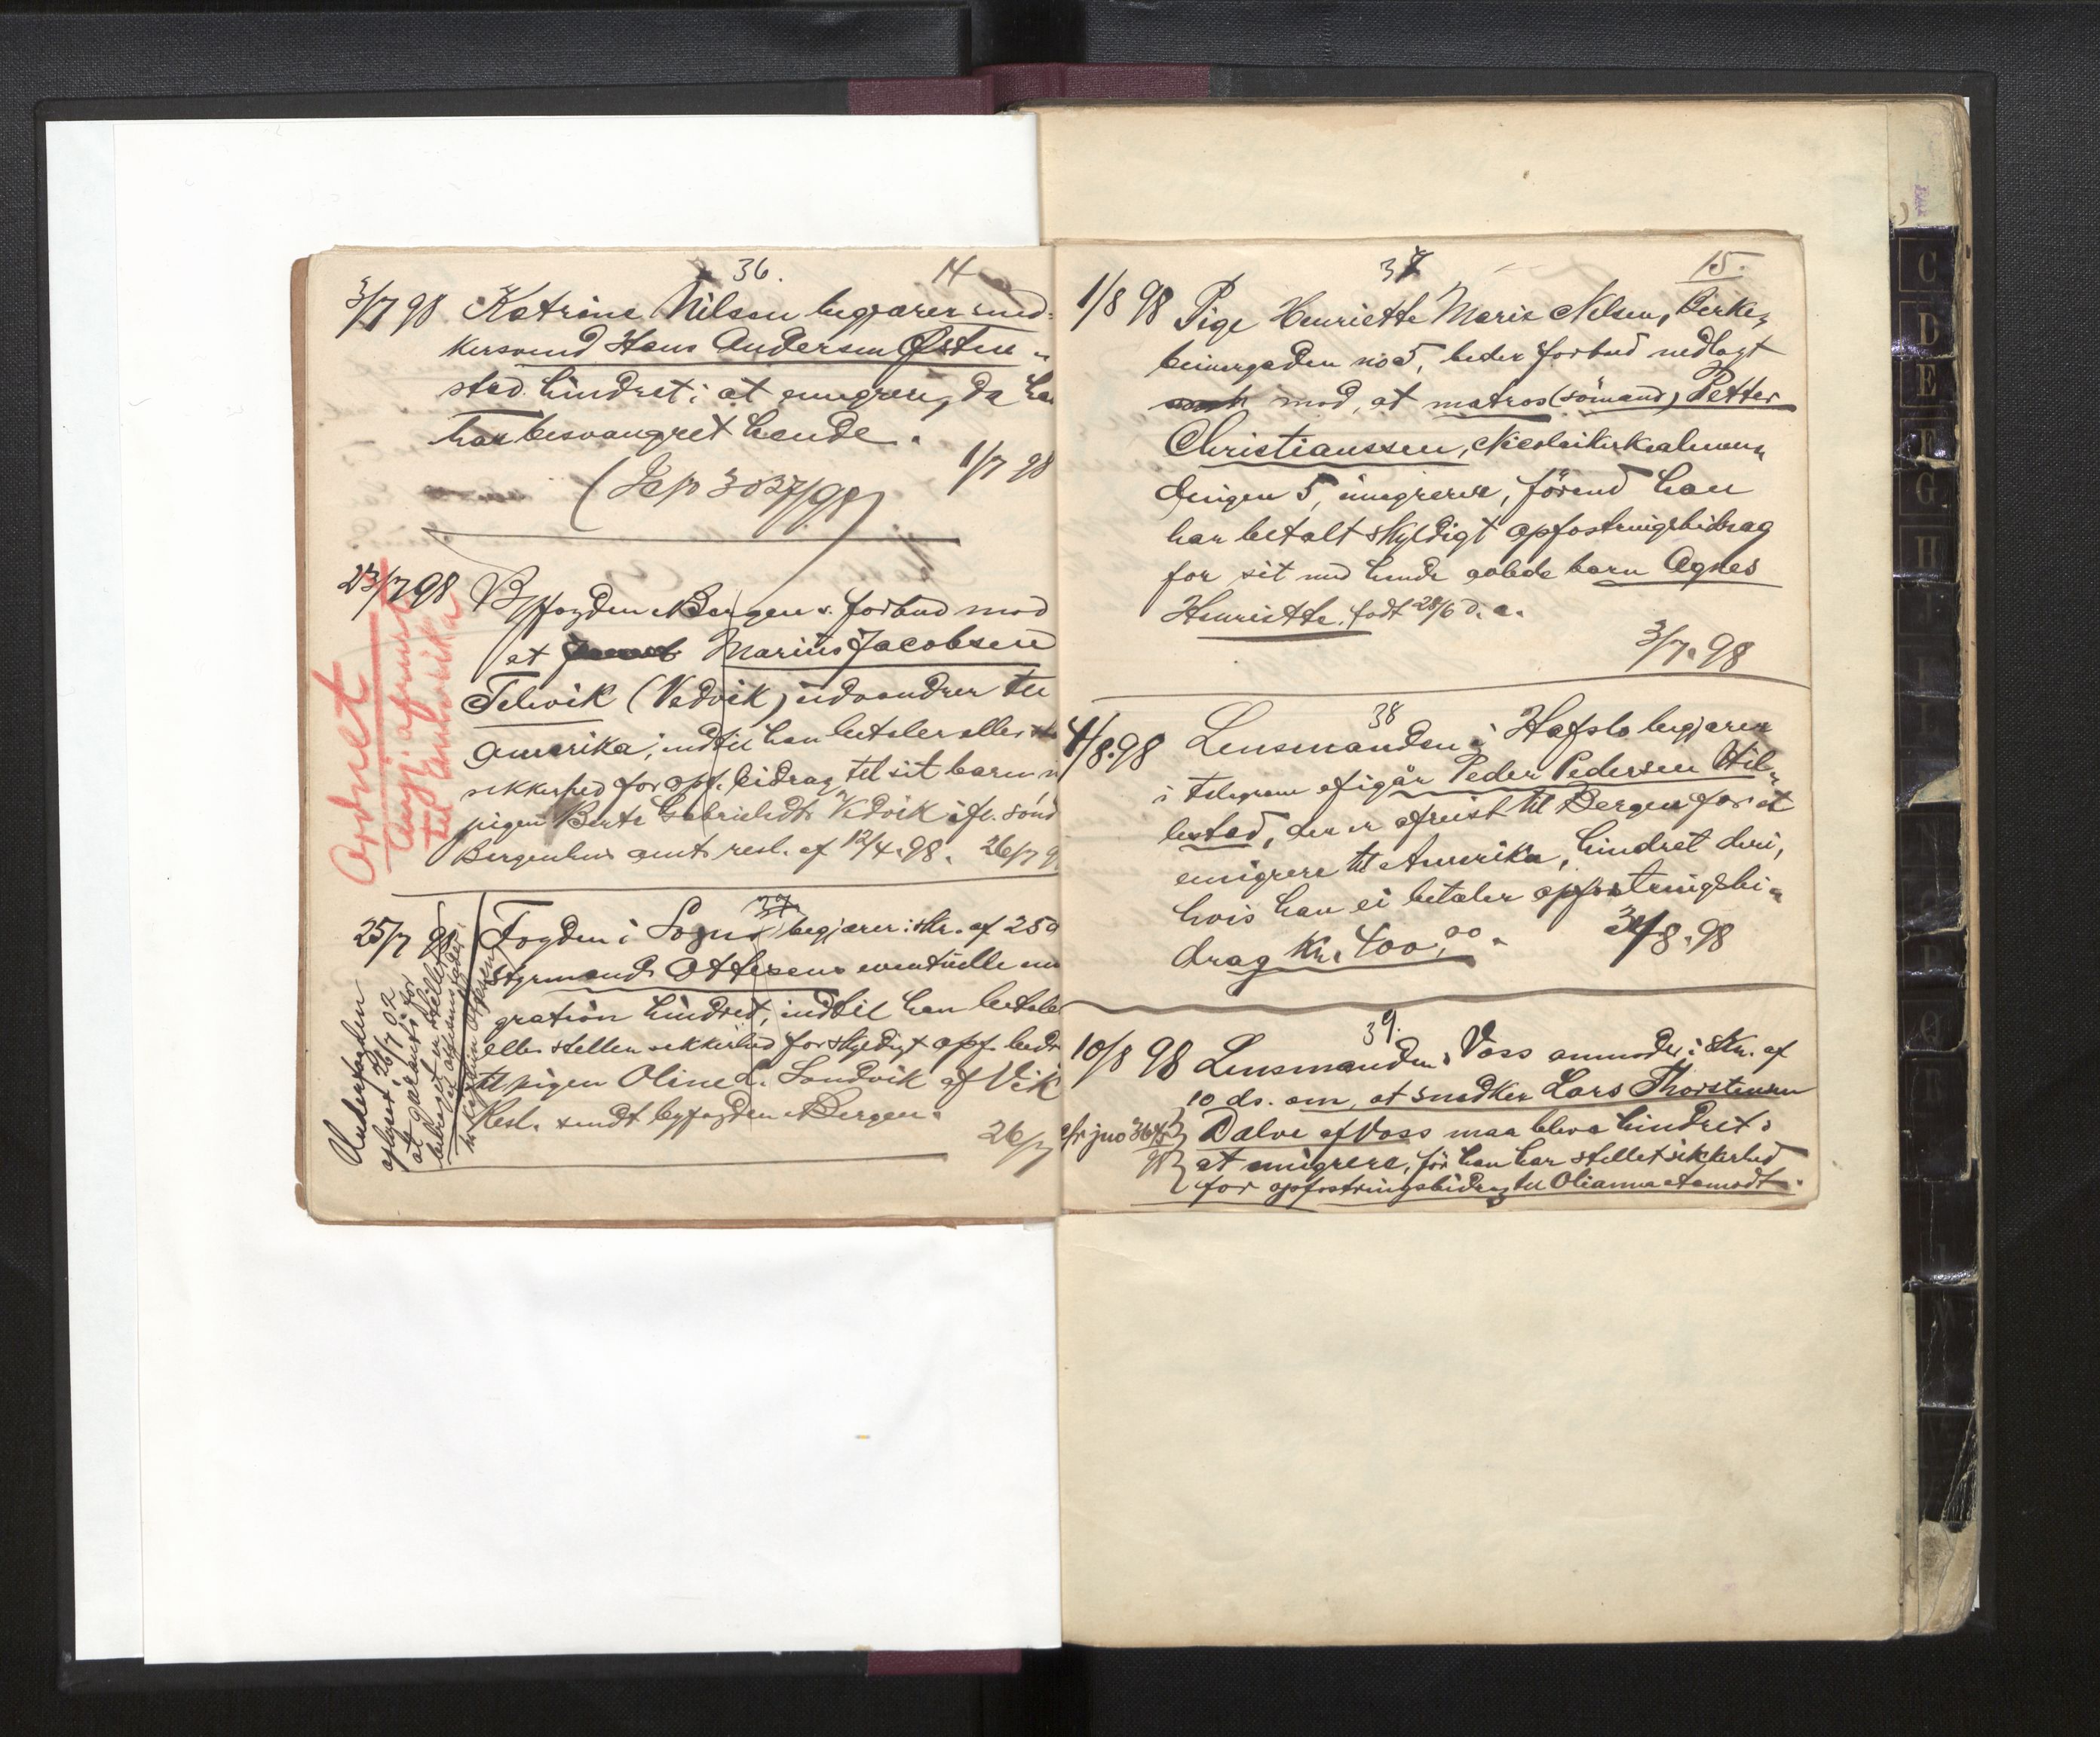 36. 14
3/7 98 Katrine Nilsen begjærer sned-
kersvend Hans Andersen Østen-
stad hindret i at emigrere, da ha
har besvangret hende.
1/7 98
(Jep 3037/98)
23/7 98 Byfogden Bergen v. forbud mod
at Marius Jacobsen
Telvik (Vedvik) udvandrer til
Amerika, indtil han betaler eller
sikkerhed for opf. bidrag til sit barn m
pigen Berte Gabrielsdtr Vedvik ifl. sönd
Bergenhus amts resl. af 12/4.98. 26/7 9
Ordnet
Angj. afreist
til Amerika
37
25/7 98 Fogden i Sogn begjærer i skr. af 25 d
styrmand Ottesens eventuelle emi
gration hindret, indtil han betale
eller stiller sikkerhed for skyldigt opf. bidr
til pigen Oline L. Sandvik af Vik
Resl. sendt byfogden Bergen.
26/7
Underfogden
oplyser 26/7 02
at garanti for
bidraget er stillet
37 15.
1/8 98 Pige Henriette Marie Nilsen, Birke-
beinergaden no 5, beder forbud nedlagt
mod, at matros (sömand) Petter
Christianssen, Nicolaikirkealmen-
dingen 5, imegrerer, förend han
har betalt skyldigt opfostringsbidrag
for sit med hende avlede barn Agnes
Henriette, fodt 28/6 d. a.
3/7. 98
38
4/8.98 Lensmanden i Hafslo begjærer
i telegram af igår Peder Pedersen Hil-
lestad, der er afreist til Bergen for at
emigrere til Amerika, hindret deri,
hvis han ei betaler opfostringsbi-
drag Kr. 400,00.
3/8.98
39.
10/8 98 Lensmanden i Voss anmoder i Skr. af
10 ds. om, at snedker Lars Thorstensen
Dalve af Voss maa blive hindret i
at emigrere, för han har stillet sikkerhed
for opfostringsbidrag til Olianna Aamodt.
cfr jno 3645
98